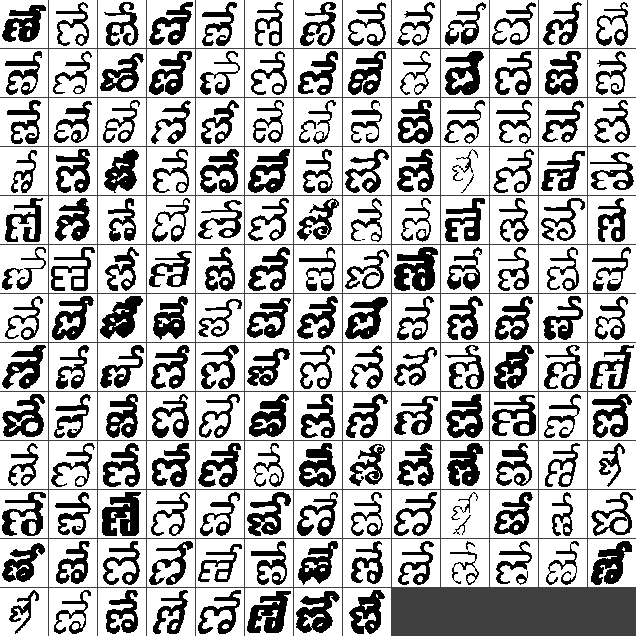 ಣೆ ಣೆ ಣೆ ಣೆ ಣೆ ಣೆ ಣೆ ಣೆ ಣೆ ಣೆ ಣೆ ಣೆ ಣೆ
ಣೆ ಣೆ ಣೆ ಣೆ ಣೆ ಣೆ ಣೆ ಣೆ ಣೆ ಣೆ ಣೆ ಣೆ ಣೆ
ಣೆ ಣೆ ಣೆ ಣೆ ಣೆ ಣೆ ಣೆ ಣೆ ಣೆ ಣೆ ಣೆ ಣೆ ಣೆ
ಣೆ ಣೆ ಣೆ ಣೆ ಣೆ ಣೆ ಣೆ ಣೆ ಣೆ ಣೆ ಣೆ ಣೆ ಣೆ
ಣೆ ಣೆ ಣೆ ಣೆ ಣೆ ಣೆ ಣೆ ಣೆ ಣೆ ಣೆ ಣೆ ಣೆ ಣೆ
ಣೆ ಣೆ ಣೆ ಣೆ ಣೆ ಣೆ ಣೆ ಣೆ ಣೆ ಣೆ ಣೆ ಣೆ ಣೆ
ಣೆ ಣೆ ಣೆ ಣೆ ಣೆ ಣೆ ಣೆ ಣೆ ಣೆ ಣೆ ಣೆ ಣೆ ಣೆ
ಣೆ ಣೆ ಣೆ ಣೆ ಣೆ ಣೆ ಣೆ ಣೆ ಣೆ ಣೆ ಣೆ ಣೆ ಣೆ
ಣೆ ಣೆ ಣೆ ಣೆ ಣೆ ಣೆ ಣೆ ಣೆ ಣೆ ಣೆ ಣೆ ಣೆ ಣೆ
ಣೆ ಣೆ ಣೆ ಣೆ ಣೆ ಣೆ ಣೆ ಣೆ ಣೆ ಣೆ ಣೆ ಣೆ ಣೆ
ಣೆ ಣೆ ಣೆ ಣೆ ಣೆ ಣೆ ಣೆ ಣೆ ಣೆ ಣೆ ಣೆ ಣೆ ಣೆ
ಣೆ ಣೆ ಣೆ ಣೆ ಣೆ ಣೆ ಣೆ ಣೆ ಣೆ ಣೆ ಣೆ ಣೆ ಣೆ
ಣೆ ಣೆ ಣೆ ಣೆ ಣೆ ಣೆ ಣೆ ಣೆ